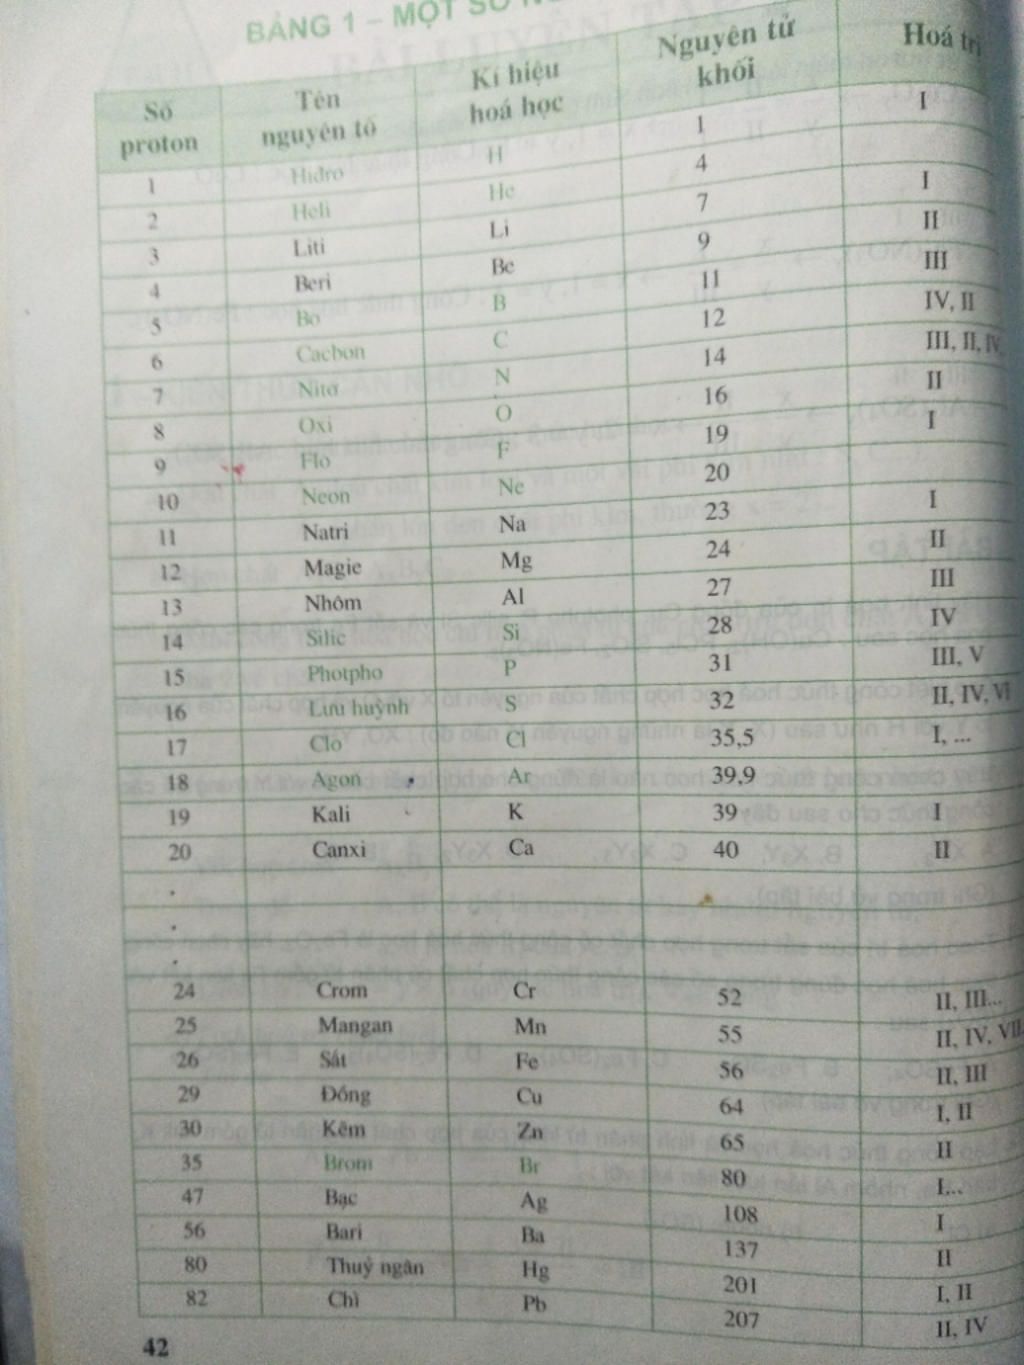 BẢNG 1 – MỘT SỐ
Số proton Tên nguyên tố Kí hiệu hoá học Nguyên tử khối Hoá trị
1 Hiđro H 1 I
2 Heli He 4
3 Liti Li 7 I
4 Beri Be 9 II
5 Bo B 11 III
6 Cacbon C 12 IV, II
7 Nitơ N 14 III, II, IV
8 Oxi O 16 II
9 Flo F 19 I
10 Neon Ne 20
11 Natri Na 23 I
12 Magie Mg 24 II
13 Nhôm Al 27 III
14 Silic Si 28 IV
15 Photpho P 31 III, V
16 Lưu huỳnh S 32 II, IV, VI
17 Clo Cl 35,5 I, ...
18 Agon Ar 39,9
19 Kali K 39 I
20 Canxi Ca 40 II
.
.
.
24 Crom Cr 52 II, III...
25 Mangan Mn 55 II, IV, VII
26 Sắt Fe 56 II, III
29 Đồng Cu 64 I, II
30 Kẽm Zn 65 II
35 Brom Br 80 I...
47 Bạc Ag 108 I
56 Bari Ba 137 II
80 Thuỷ ngân Hg 201 I, II
82 Chì Pb 207 II, IV
42